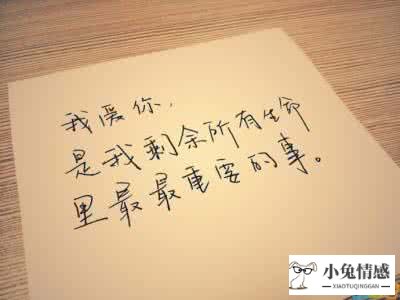 我爱你,
是我剩余所有生命
里最最重要的事。
小兔情感
XIAOTUQINGGAN